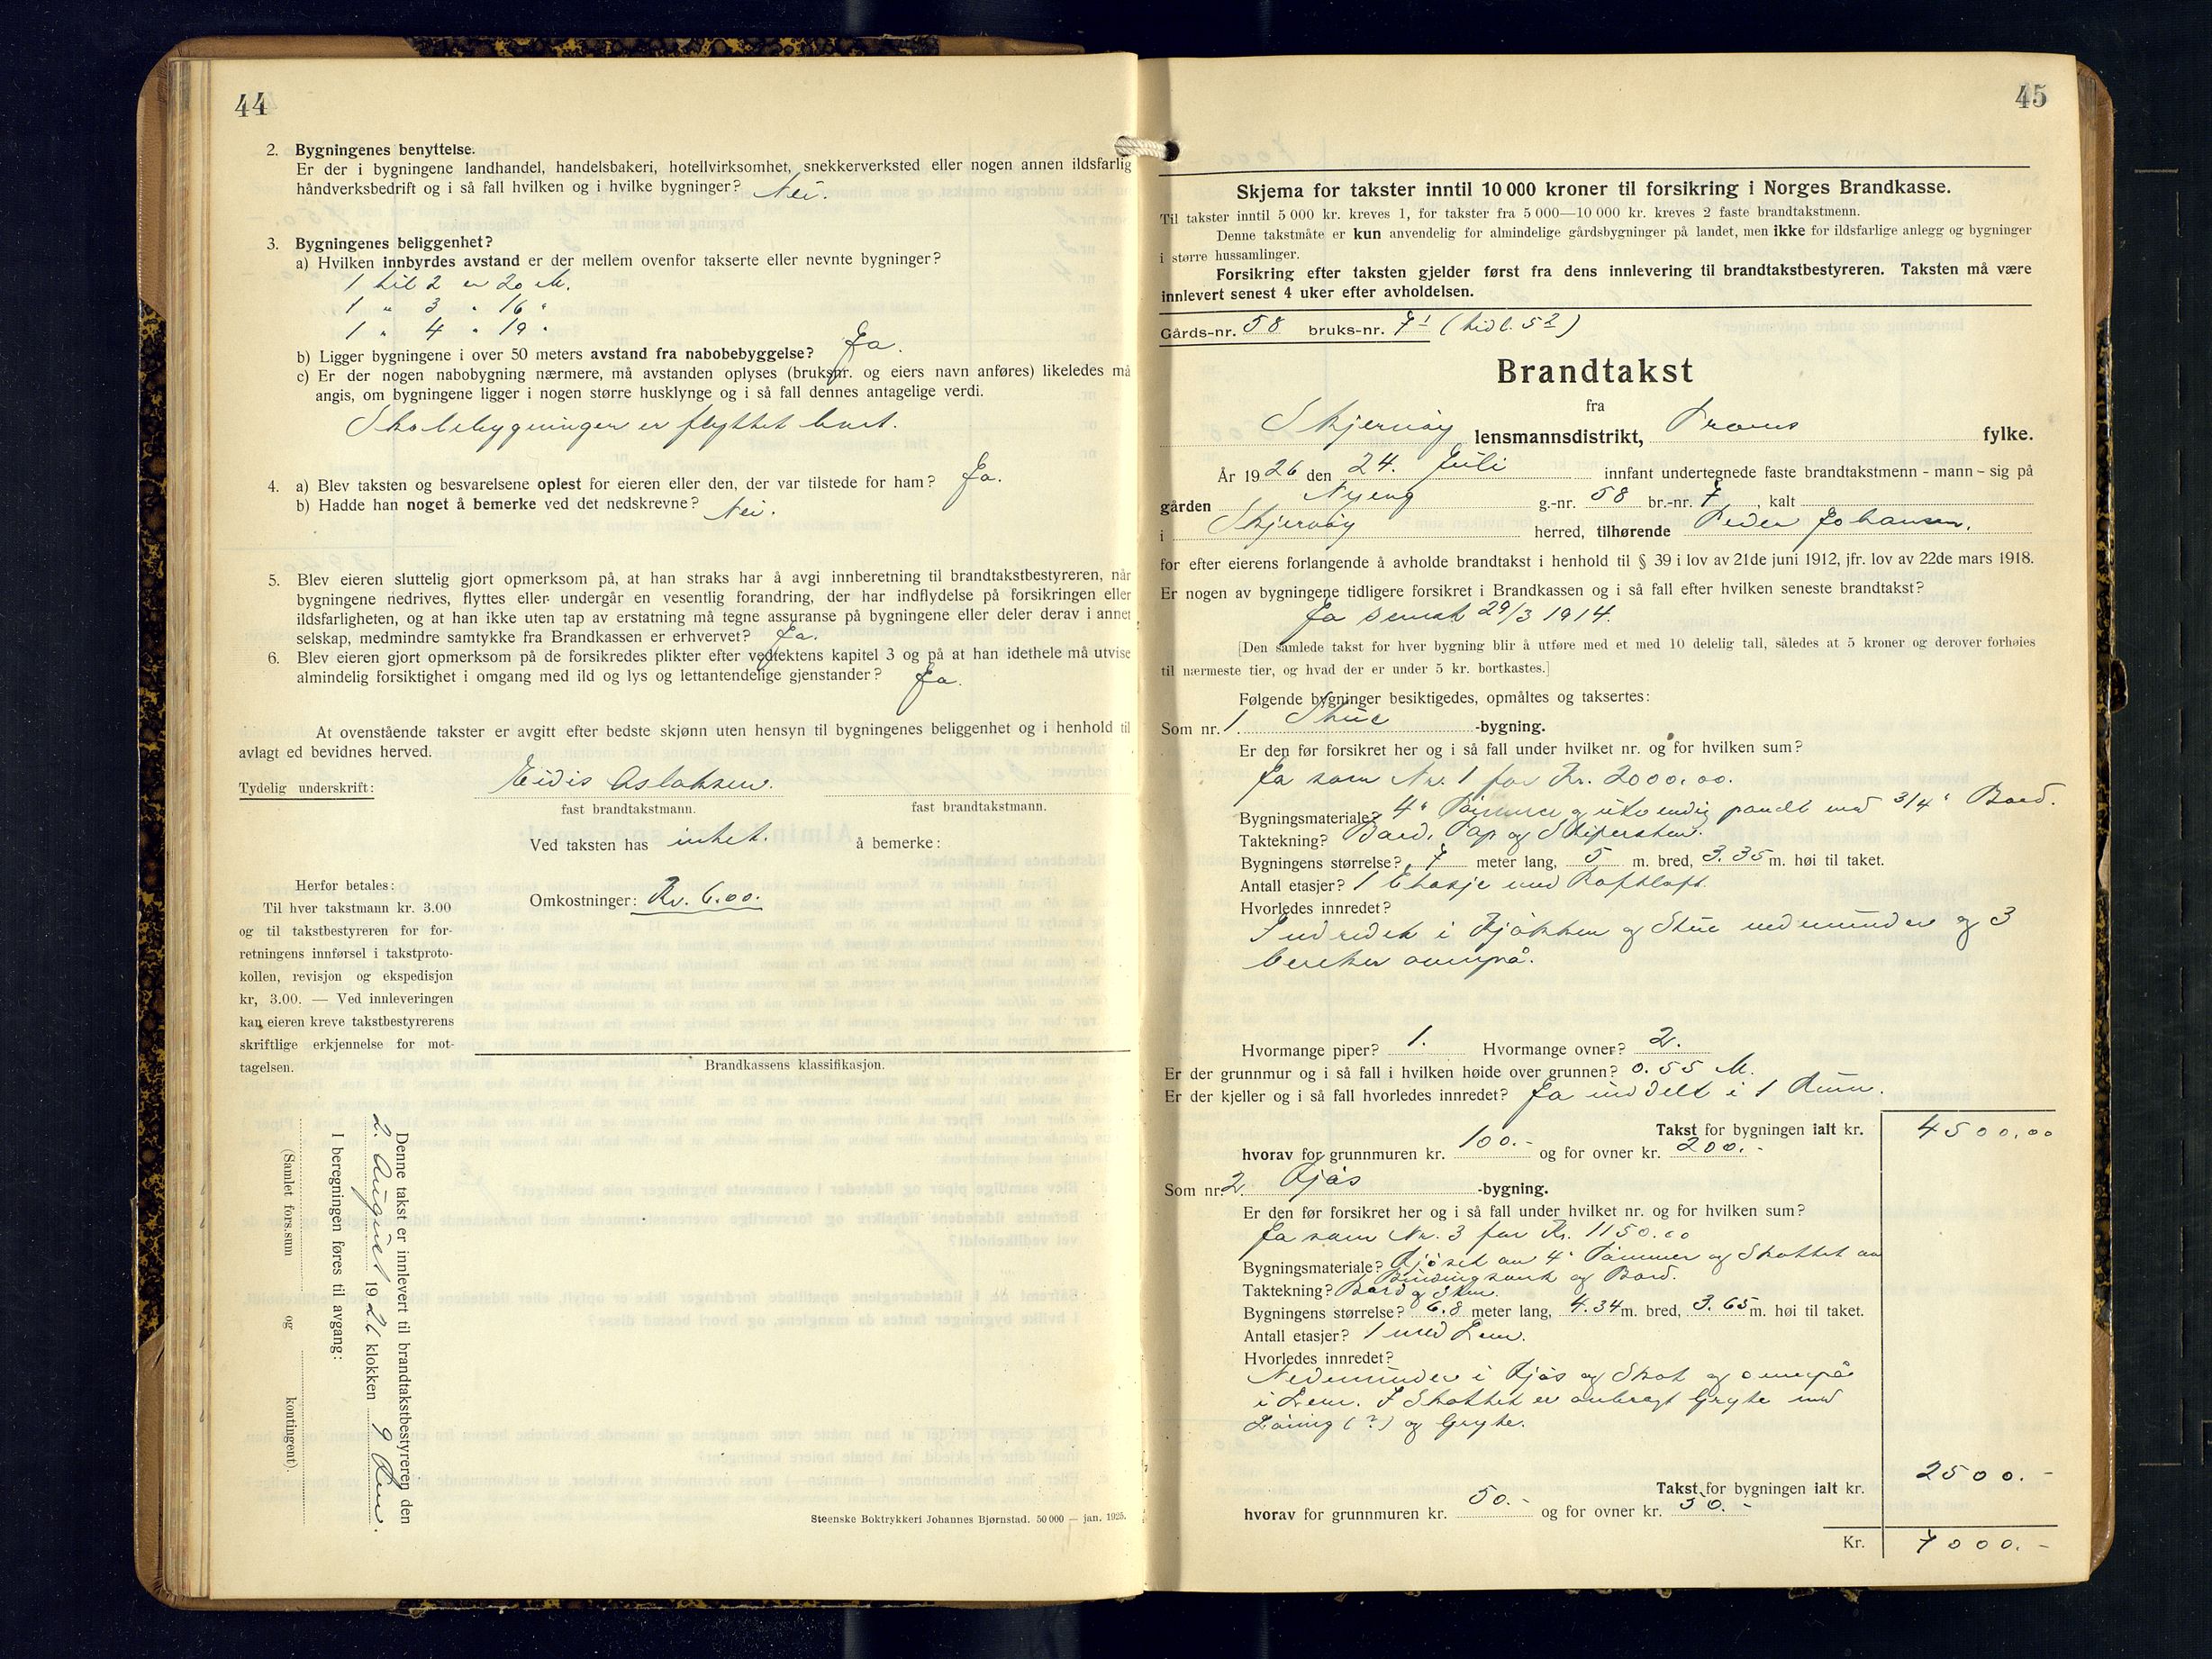 44
2. Bygningenes benyttelse.
Er der i bygningene landhandel, handelsbakeri, hotellvirksomhet, snekkerverksted eller nogen annen ildsfarlig
håndverksbedrift og i så fall hvilken og i hvilke bygninger? Nei.
3. Bygningenes beliggenhet?
a) Hvilken innbyrdes avstand er der mellem ovenfor takserte eller nevnte bygninger?
1 til 2 er 20 M.
1 " 3 " 16 "
1 " 4 " 19 "
b) Ligger bygningene i over 50 meters avstand fra nabobebyggelse? Ja.
c) Er der nogen nabobygning nærmere, må avstanden oplyses (bruksnr. og eiers navn anføres) likeledes må
angis, om bygningene ligger i nogen større husklynge og i så fall dennes antagelige verdi.
Skolebygningen er flyttet bort.
4. a) Blev taksten og besvarelsene oplest for eieren eller den, der var tilstede for ham? Ja.
b) Hadde han noget å bemerke ved det nedskrevne? Nei.
5. Blev eieren sluttelig gjort opmerksom på, at han straks har å avgi innberetning til brandtakstbestyreren, når
bygningene nedrives, flyttes eller undergår en vesentlig forandring, der har indflydelse på forsikringen eller
ildsfarligheten, og at han ikke uten tap av erstatning må tegne assuranse på bygningene eller deler derav i annet
selskap, medmindre samtykke fra Brandkassen er erhvervet? Ja.
6. Blev eieren gjort opmerksom på de forsikredes plikter efter vedtektens kapitel 3 og på at han idethele må utvise
almindelig forsiktighet i omgang med ild og lys og lettantendelige gjenstander? Ja.
At ovenstående takster er avgitt efter bedste skjønn uten hensyn til bygningenes beliggenhet og i henhold til
avlagt ed bevidnes herved.
Tydelig underskrift: Eidis Aslaksen.
fast brandtakstmann. fast brandtakstmann.
Ved taksten has intet. å bemerke:
Herfor betales:
Til hver takstmann kr. 3.00
og til takstbestyreren for for-
retningens innførsel i takstproto-
kollen, revisjon og ekspedisjon
kr, 3.00. — Ved innleveringen
kan eieren kreve takstbestyrerens
skriftlige erkjennelse for mot-
tagelsen.
Omkostninger: Kr. 6.00.
Brandkassens klassifikasjon.
Denne takst er innlevert til brandtakstbestyreren den
2. August 1926 klokken 9 Em.
I beregningen føres til avgang:
(Samlet fors.sum og kontingent).
Steenske Boktrykkeri Johannes Bjørnstad. 50 000 — jan. 1925.
45
Skjema for takster inntil 10 000 kroner til forsikring i Norges Brandkasse.
Til takster inntil 5 000 kr. kreves 1, for takster fra 5 000—10 000 kr. kreves 2 faste brandtakstmenn.
Denne takstmåte er kun anvendelig for almindelige gårdsbygninger på landet, men ikke for ildsfarlige anlegg og bygninger
i større hussamlinger.
Forsikring efter taksten gjelder først fra dens innlevering til brandtakstbestyreren. Taksten må være
innlevert senest 4 uker efter avholdelsen.
Gårds-nr. 58 bruks-nr. 7¹ (tidl. 5²)
Brandtakst
fra
Skjervøy lensmannsdistrikt, Troms fylke.
År 1926 den 24. Juli innfant undertegnede faste brandtakstmenn - mann - sig på
gården Nyeng g.-nr. 58 br.-nr. 7, kalt
i Skjervøy herred, tilhørende Peder Johansen.
for efter eierens forlangende å avholde brandtakst i henhold til § 39 i lov av 21de juni 1912, jfr. lov av 22de mars 1918.
Er nogen av bygningene tidligere forsikret i Brandkassen og i så fall efter hvilken seneste brandtakst?
Ja senest 29/3 1914.
[Den samlede takst for hver bygning blir å utføre med et med 10 delelig tall, således at 5 kroner og derover forhøies
til nærmeste tier, og hvad der er under 5 kr. bortkastes.]
Følgende bygninger besiktigedes, opmåltes og taksertes:
Som nr. 1. Stue -bygning.
Er den før forsikret her og i så fall under hvilket nr. og for hvilken sum?
Ja som Nr. 1 for Kr. 2000.00.
Bygningsmateriale? 4" Tømmer og utvendig panelt med 3/4" Bord.
Taktekning? Bord, Pap og Skifersten.
Bygningens størrelse? 7 meter lang, 5 m. bred, 3.35 m. høi til taket.
Antall etasjer? 1 Etasje med Loftsloft.
Hvorledes innredet?
Indredet i Kjøkken og Stue nedenunder og 3
ovenpå.
Hvormange piper? 1. Hvormange ovner? 2.
Er der grunnmur og i så fall i hvilken høide over grunnen? 0.55 M.
Er der kjeller og i så fall hvorledes innredet? Ja inddelt i 1 Rum.
Takst for bygningen ialt kr. 4500.00
hvorav for grunnmuren kr. 100.- og for ovner kr. 200.-
Som nr. 2. Fjøs -bygning.
Er den før forsikret her og i så fall under hvilket nr. og for hvilken sum?
Ja som Nr. 3 for Kr. 1150.00
Bygningsmateriale? Fjøset av 4" Tømmer og Skottet av
Bindingsverk og Bord.
Taktekning? Bord og Sten.
Bygningens størrelse? 6.8 meter lang, 4.34 m. bred, 3.65 m. høi til taket.
Antall etasjer? 1 med Lem.
Hvorledes innredet?
Nedenunder i Fjøs og Skot og ovenpå
i Lem. I Skottet er anbragt Gryte med
(?) og Gryte.
Takst for bygningen ialt kr. 2500.-
hvorav for grunnmuren kr. 50.- og for ovner kr. 50.-
Kr. 7000.-